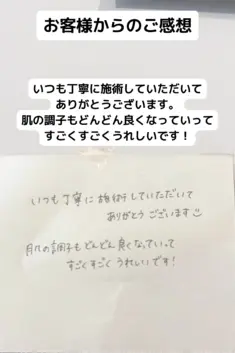 お客様からのご感想
いつも丁寧に施術していただいて
ありがとうございます。
肌の調子もどんどん良くなっていって
すごくすごくうれしいです！
いつも丁寧に施術していただいて
ありがとうございます
肌の調子もどんどん良くなっていって
すごくすごくうれしいです！